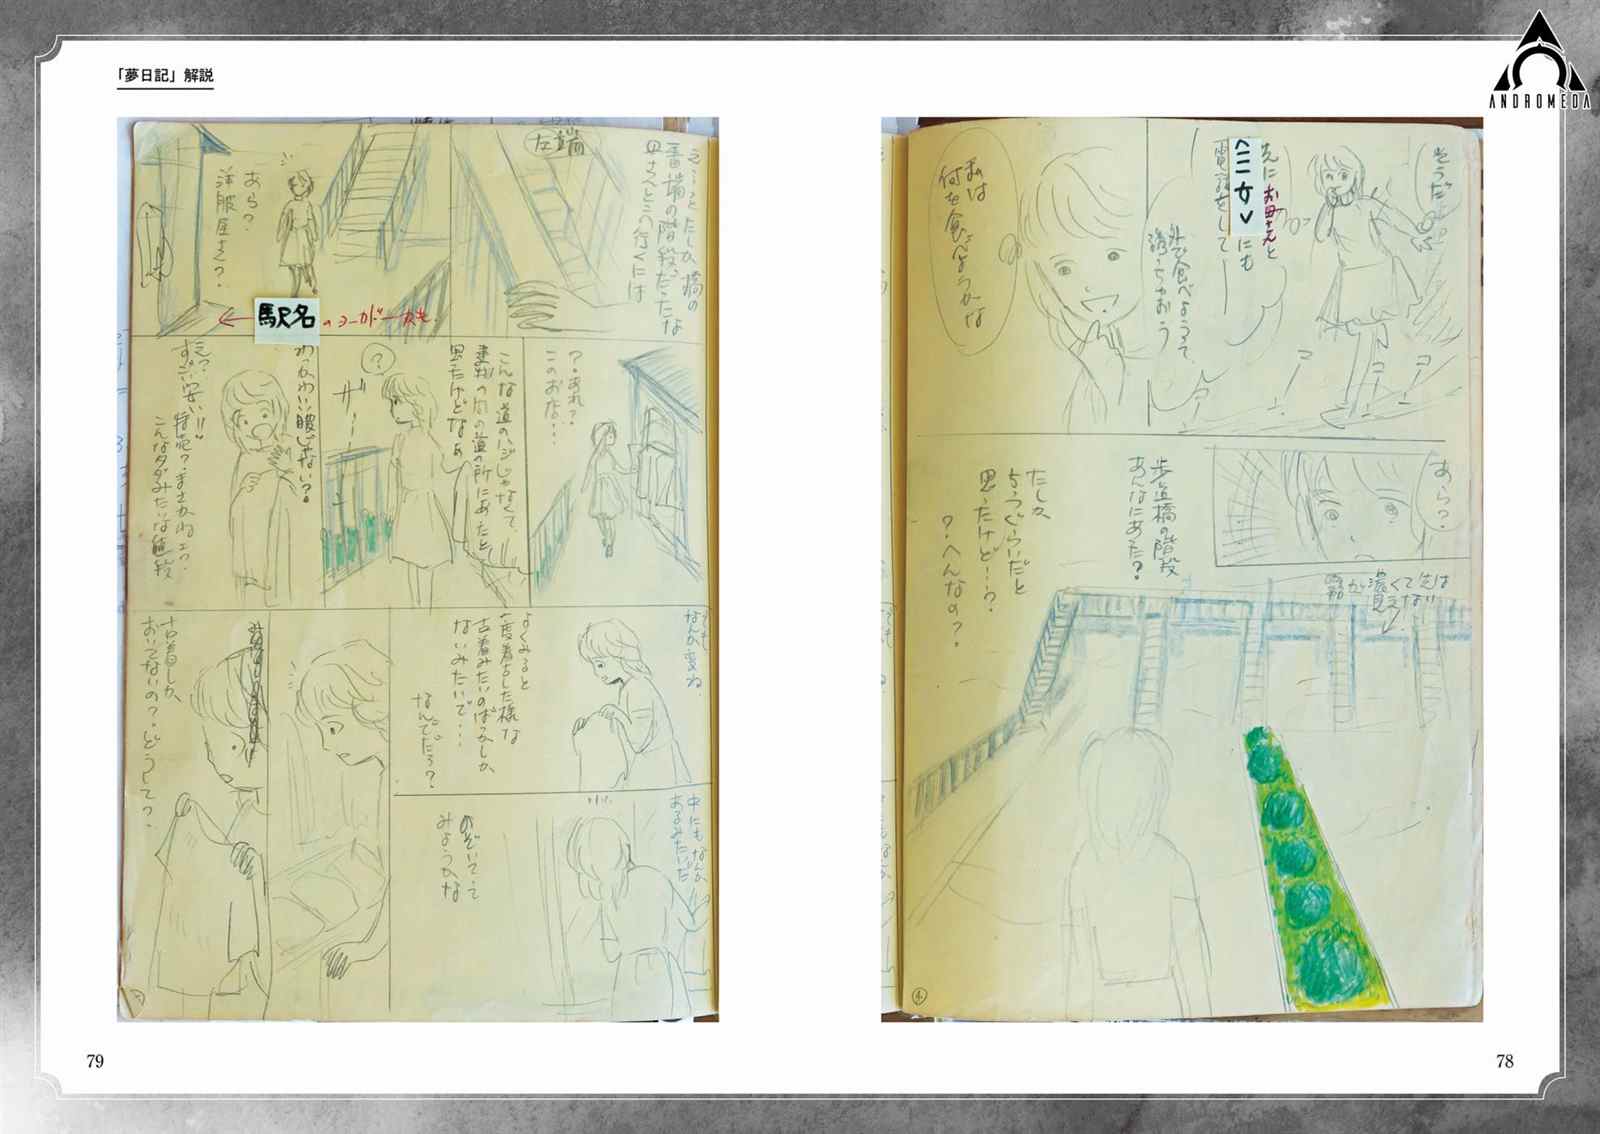 「夢日記」解説
ANDROMEDA
そうだ
先にお母さんと
〈三女〉にも
電話をして
外で食べようって
誘っちゃおう
私は
何を食べようかな
あら?
歩道橋の階段
あんなにあった?
たしか
もう
思ったけど…?
?へんなの?
霧が濃くて先は
見えない!!
78
え…っとたしか橋の
一番端の階段だったな
お母さんとこへ行くには
左端
あら?
洋服屋さん?
駅名のヨーカドーかも
?あれ?
このお店…
こんな道のハジじゃなくて、
建物の間の道の所にあったと
思ったけどなぁ
?
ザ
わっかわいい服じゃない?
えっ?
すっごい安い!!
特売?まさかねェ?
こんなタダみたいな値段
でも
なんか変ね
よくみると
一度着もした様な
古着みたいのばっかしか
ないみたいで…
なんでだろ?
中にもなんか
あるみたいだ
のぞいて
みようかな
古着しか
おいてないの?どうして?
79